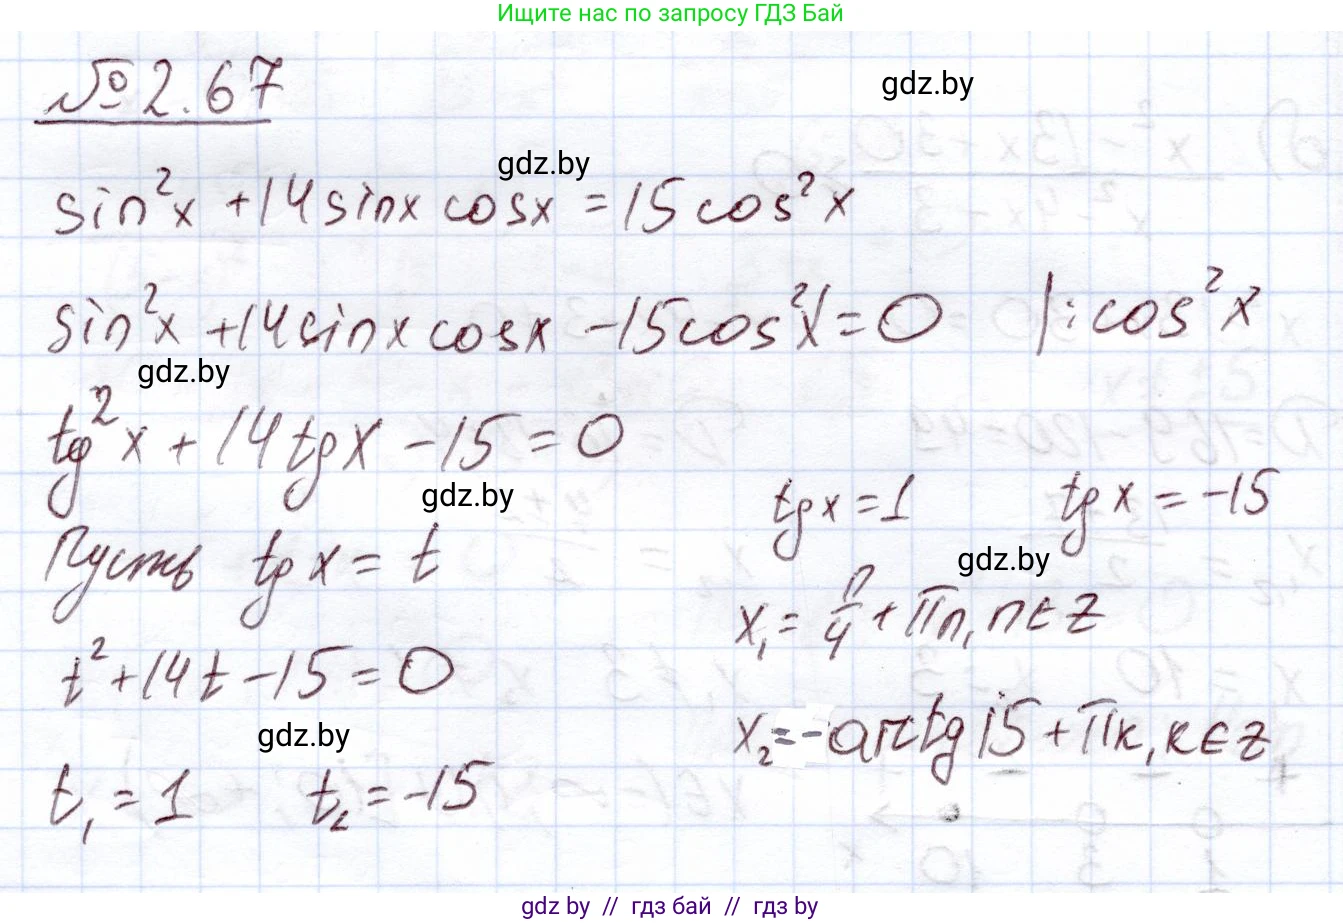 Ищите нас по запросу ГДЗ Бай
№ 2.67
gdz.by
gdz.by
sin²x + 14 sinx cosx = 15 cos²x
sin²x + 14 sinx cosx - 15 cos²x = 0 |: cos²x
gdz.by
tg²x + 14 tgx - 15 = 0
gdz.by
Пусть tgx = t
t² + 14t - 15 = 0
gdz.by
t₁ = 1 t₂ = -15
tgx = 1 tgx = -15
gdz.by
x₁ = π/4 + πn, n ∈ z
x₂ = - arctg 15 + πk, k ∈ z
gdz by // гдз бай // гдз by